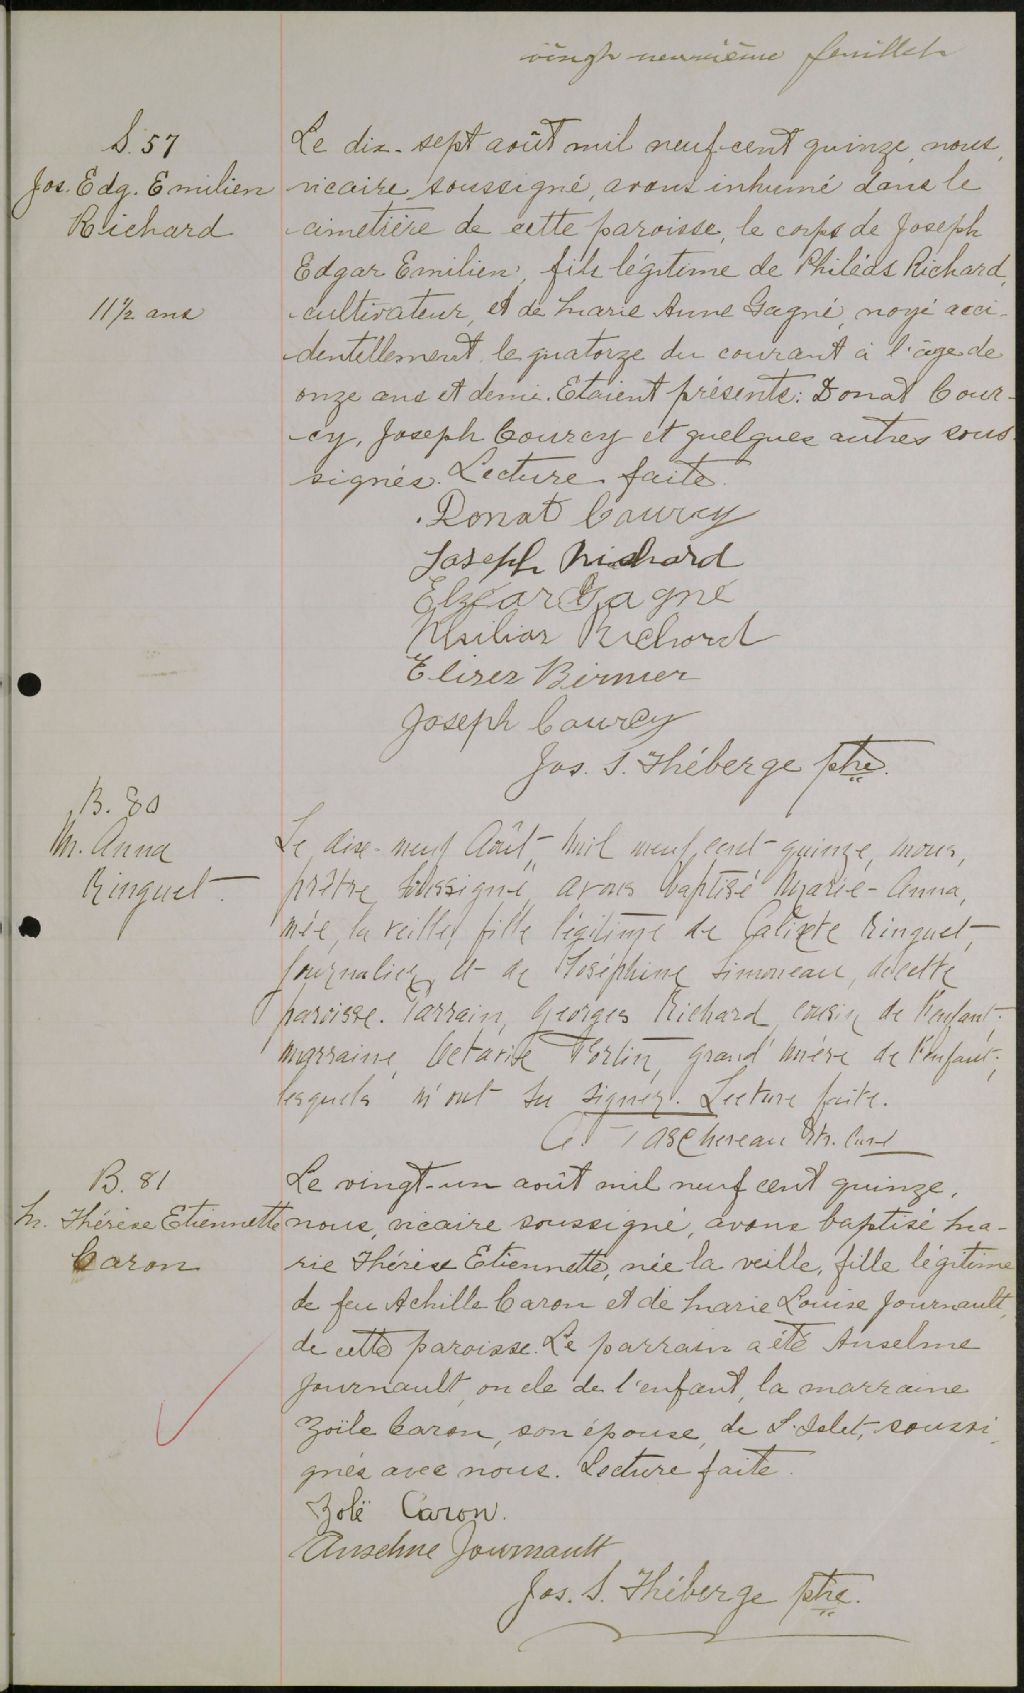 vingt neuvième feuillet
S. 57
Jos. Edg. Emilien
Richard
11 1/2 ans
Le dix-sept août mil neuf-cent quinze, nous,
vicaire soussigné, avons inhumé dans le
cimetière de cette paroisse, le corps de Joseph
Edgar Emilien, fils légitime de Philéas Richard,
cultivateur, et de Marie Anne Gagné, noyé acci-
dentellement le quatorze du courant à l'âge de
onze ans et demi. Etaient présents: Donat Cour-
cy, Joseph Courcy et quelques autres sous-
signés. Lecture faite.
Donat Courcy
Joseph Richard
Elzéar Gagné
Richard
Elizer Bernier
Joseph Courcy
Jos. S. Théberge ptre.
B. 80
M. Anna
Ringuet
Le dix-neuf Août, mil neuf cent quinze, nous,
prêtre soussigné, avons baptisé Marie-Anna,
née, la veille, fille légitime de Calixte Ringuet,
journalier, et de Joséphine Simoneau, de cette
paroisse. Parrain, Georges Richard, cousin de l'enfant;
marraine, Octavie Fortin, grand'mère de l'enfant;
lesquels n'ont su signer. Lecture faite.
Taschereau Ptr. Curé
B. 81
M. Thérèse Etiennette
Caron
Le vingt-un août mil neuf cent quinze,
nous, vicaire soussigné, avons baptisé Ma-
rie Thérèse Etiennette, née la veille, fille légitime
de feu Achille Caron et de Marie Louise Journault,
de cette paroisse. Le parrain a été Anselme
Journault, oncle de l'enfant, la marraine
Zoïle Caron, son épouse, de L'Islet, soussi-
gnés avec nous. Lecture faite.
Zolë Caron.
Anselme Journault
Jos. S. Théberge ptre.